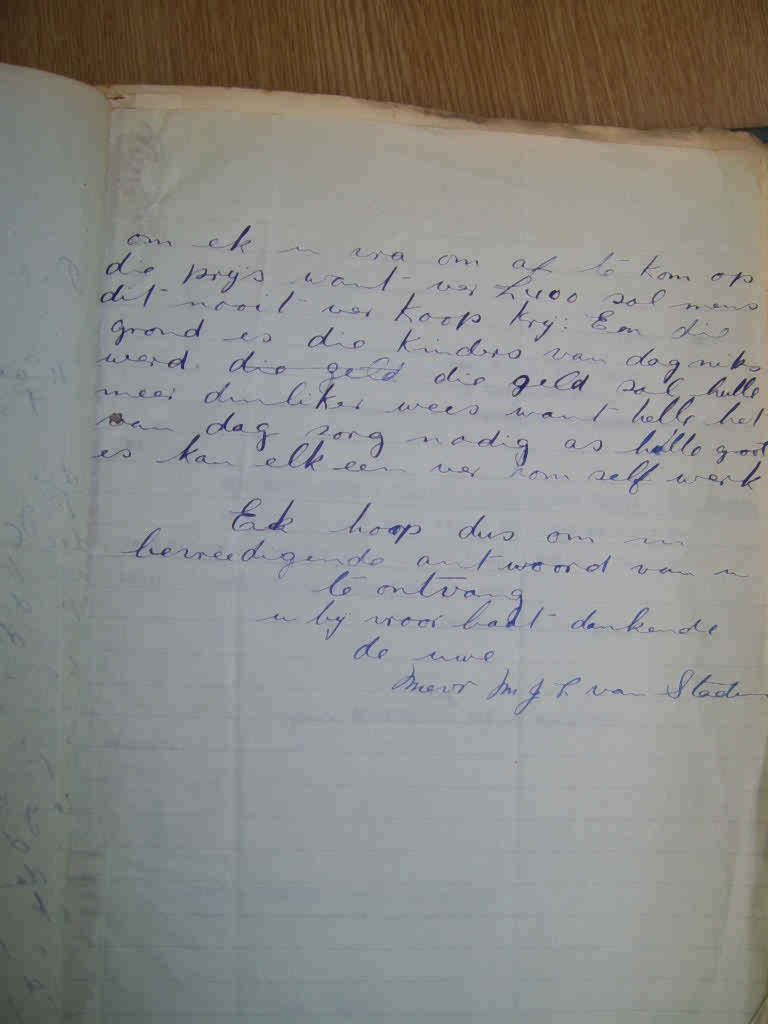 om ek u vra om af te kom op
die prys want ver £400 sal mens
dit nooit ver koop kry: Een die
grond is die kinders van dag niks
werd. die geld die geld sal hulle
meer dinliker wees want hulle het
van dag sorg nodig as hulle groot
is kan elk een ver hom self werk
Ek hoop dus om un
bevreedigende antwoord van u
te ontvang
u by voor baat dankende
de uwe
Mevr M J L van Staden